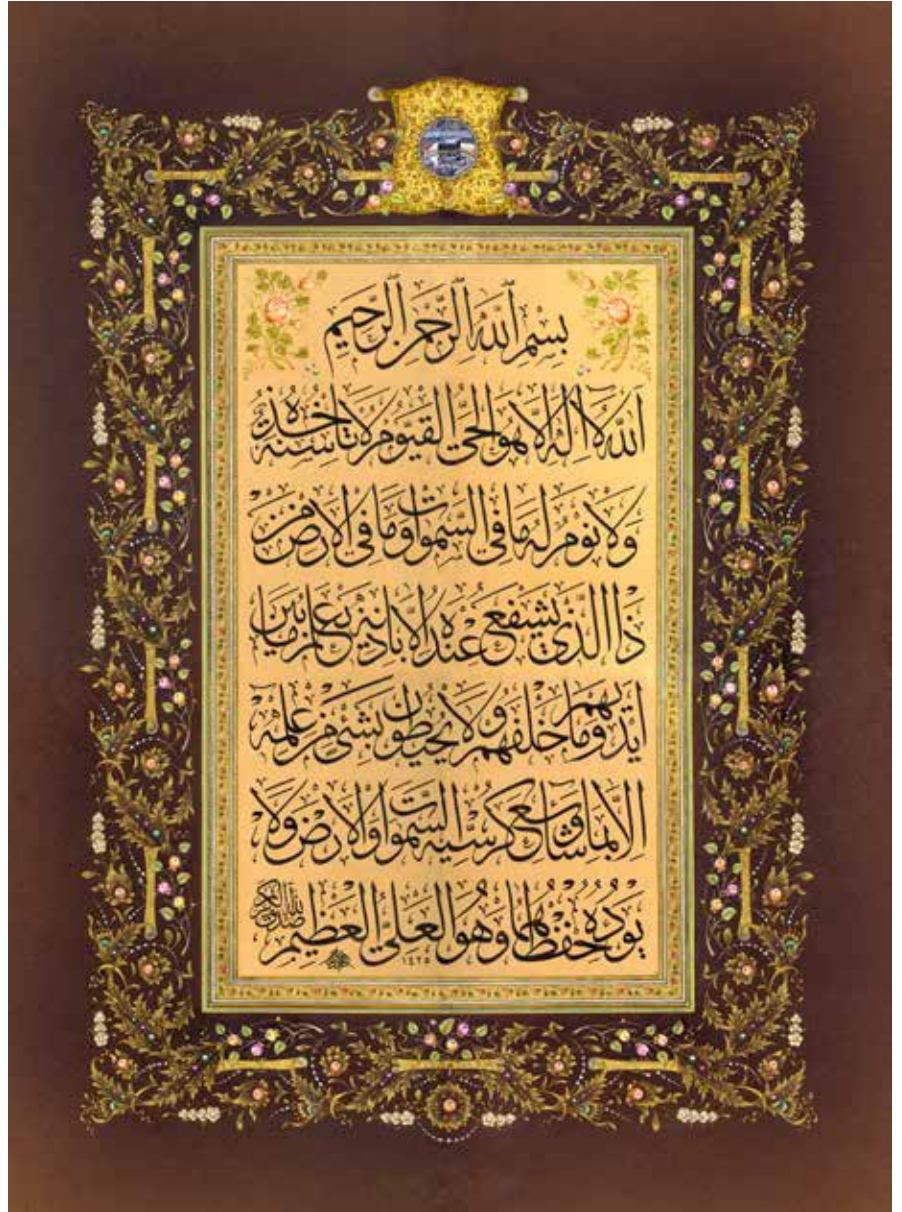 بِسْمِ اللّٰهِ الرَّحْمٰنِ الرَّحِيمِ
اَللّٰهُ لَا اِلٰهَ اِلَّا هُوَ الْحَيُّ الْقَيُّومُ لَا تَأْخُذُهُ سِنَةٌ
وَلَا نَوْمٌ لَهُ مَا فِي السَّمٰوَاتِ وَمَا فِي الْاَرْضِ مَنْ
ذَا الَّذِي يَشْفَعُ عِنْدَهُ اِلَّا بِاِذْنِهِ يَعْلَمُ مَا بَيْنَ
اَيْدِيهِمْ وَمَا خَلْفَهُمْ وَلَا يُحِيطُونَ بِشَيْءٍ مِنْ عِلْمِهِ
اِلَّا بِمَا شَاءَ وَسِعَ كُرْسِيُّهُ السَّمٰوَاتِ وَالْاَرْضَ وَلَا
يَؤُدُهُ حِفْظُهُمَا وَهُوَ الْعَلِيُّ الْعَظِيمُ
١٤٢٥